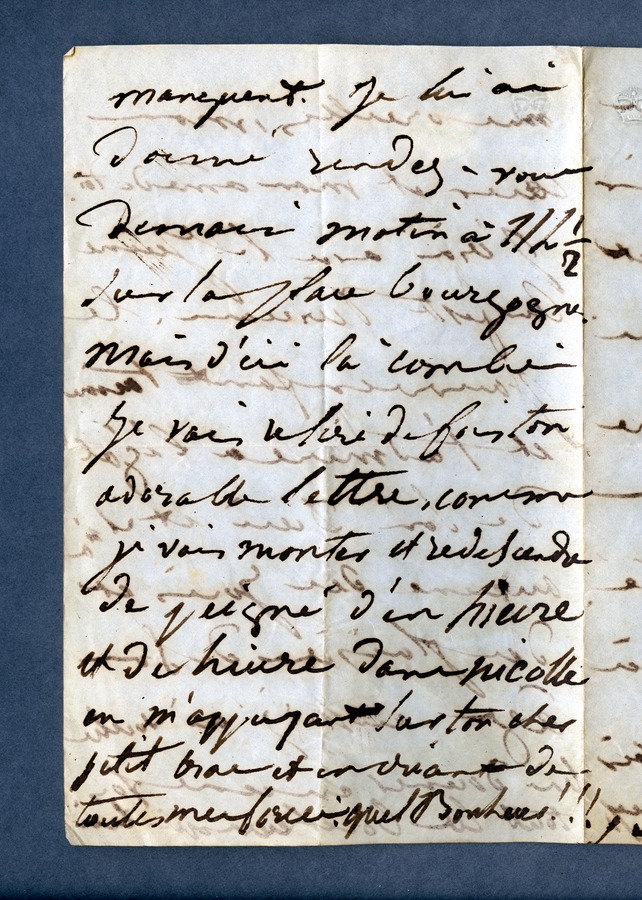 manquent. Je lui ai
donné rendez-vous
demain matin à 11h 1/2
sur la place bourgogne.
Mais d'ici là combien
je vais relire de fois ton
adorable lettre, comme
je vais monter et redescendre
de d'en hierre
et de hierre dans
en m'appuyant sur ton cher
petit bras et en criant de
toutes mes forces: quel Bonheur!!!